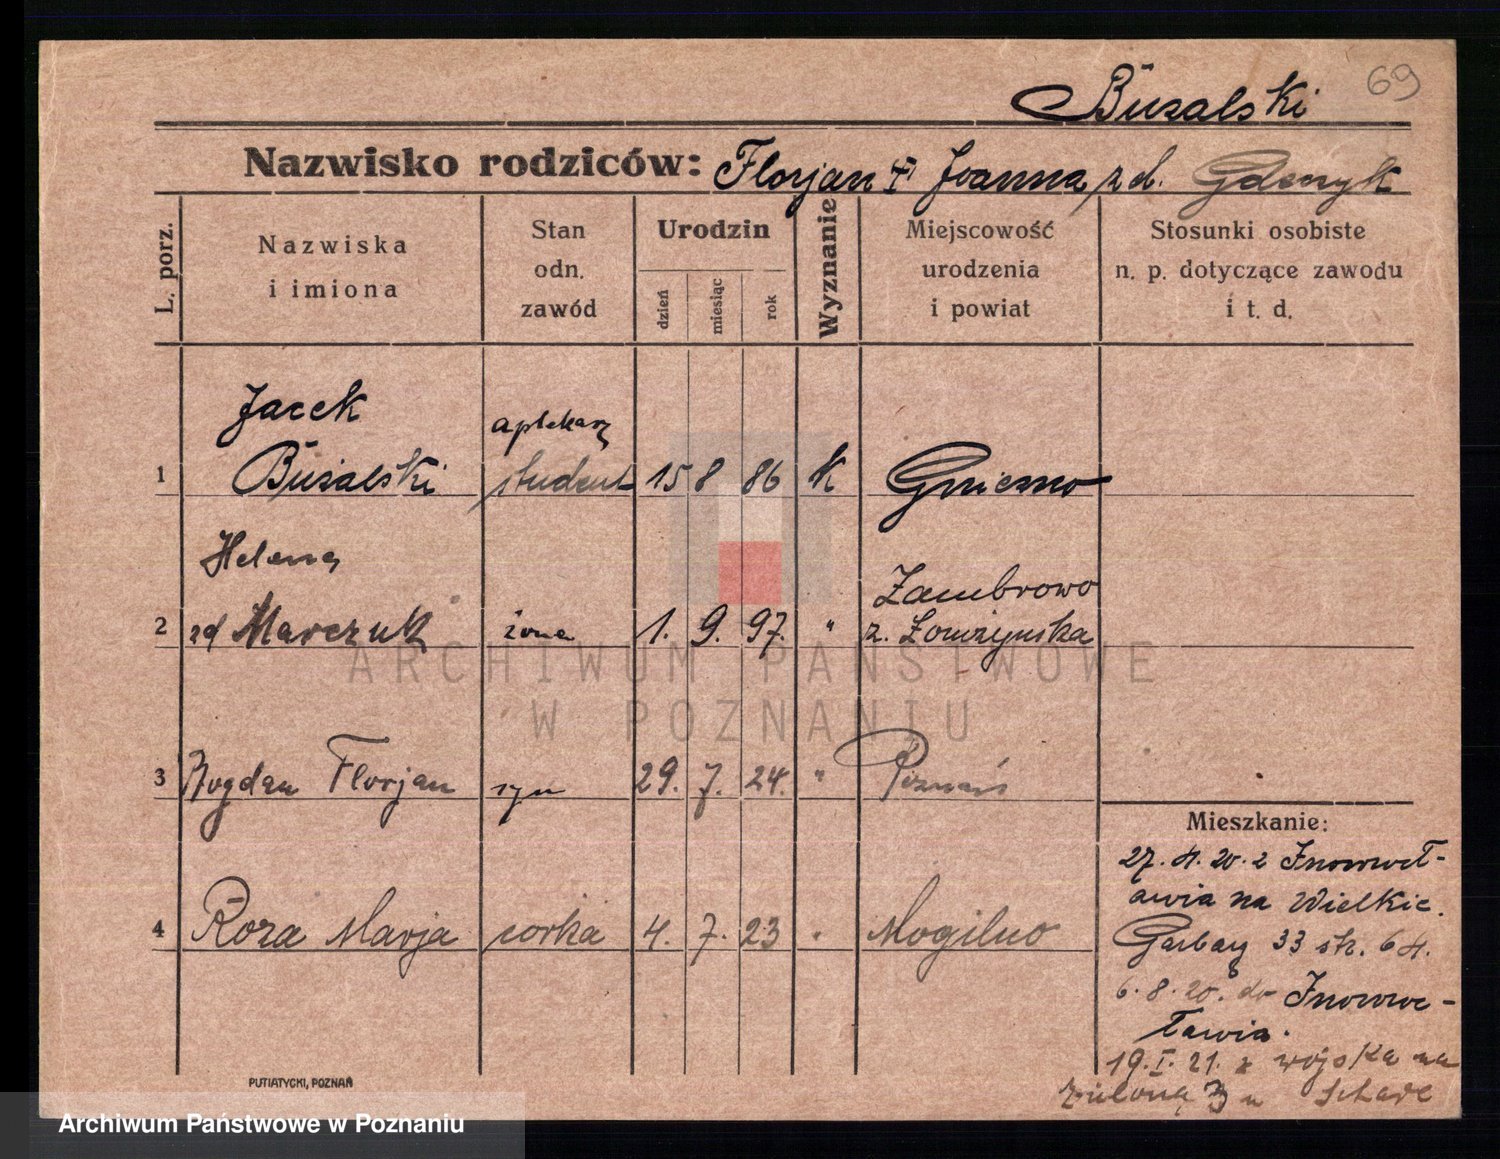 Buzalski 69
Nazwisko rodziców: Florjan i Joanna zd.
L. porz.
Nazwiska
i imiona
Stan
odn.
zawód
Urodzin
dzień
miesiąc
rok
Wyznanie
Miejscowość
urodzenia
i powiat
Stosunki osobiste
n. p. dotyczące zawodu
i t. d.
Jacek aptekarz
1 Buzalski student 15 8 86 k Gniezno
Helena Zambrowo
2 zd Marczuk żona 1. 9. 97. " z. Łomżyńska
3 Bogdan Florjan syn 29. 7. 24. " Poznań
4 Róża Marja córka 4. 7. 23 " Mogilno
Mieszkanie:
27. 4. 20. z Inowrocł-
awia na Wielkie.
Garbary 33 str. 64.
6. 8. 20. do Inowroc-
ławia.
19. I. 21. z wojska na
zieloną 3 u
PUTIATYCKI, POZNAŃ
ARCHIWUM PAŃSTWOWE
W POZNANIU
Archiwum Państwowe w Poznaniu